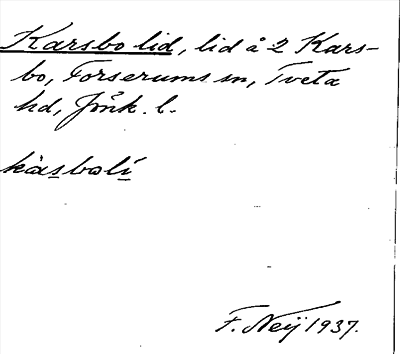 Karsbo lid, lid å 2 Kars-
bo, Forserums sn, Tveta
hd, Jönk. l.
kàsbolí
F. Neij 1937.